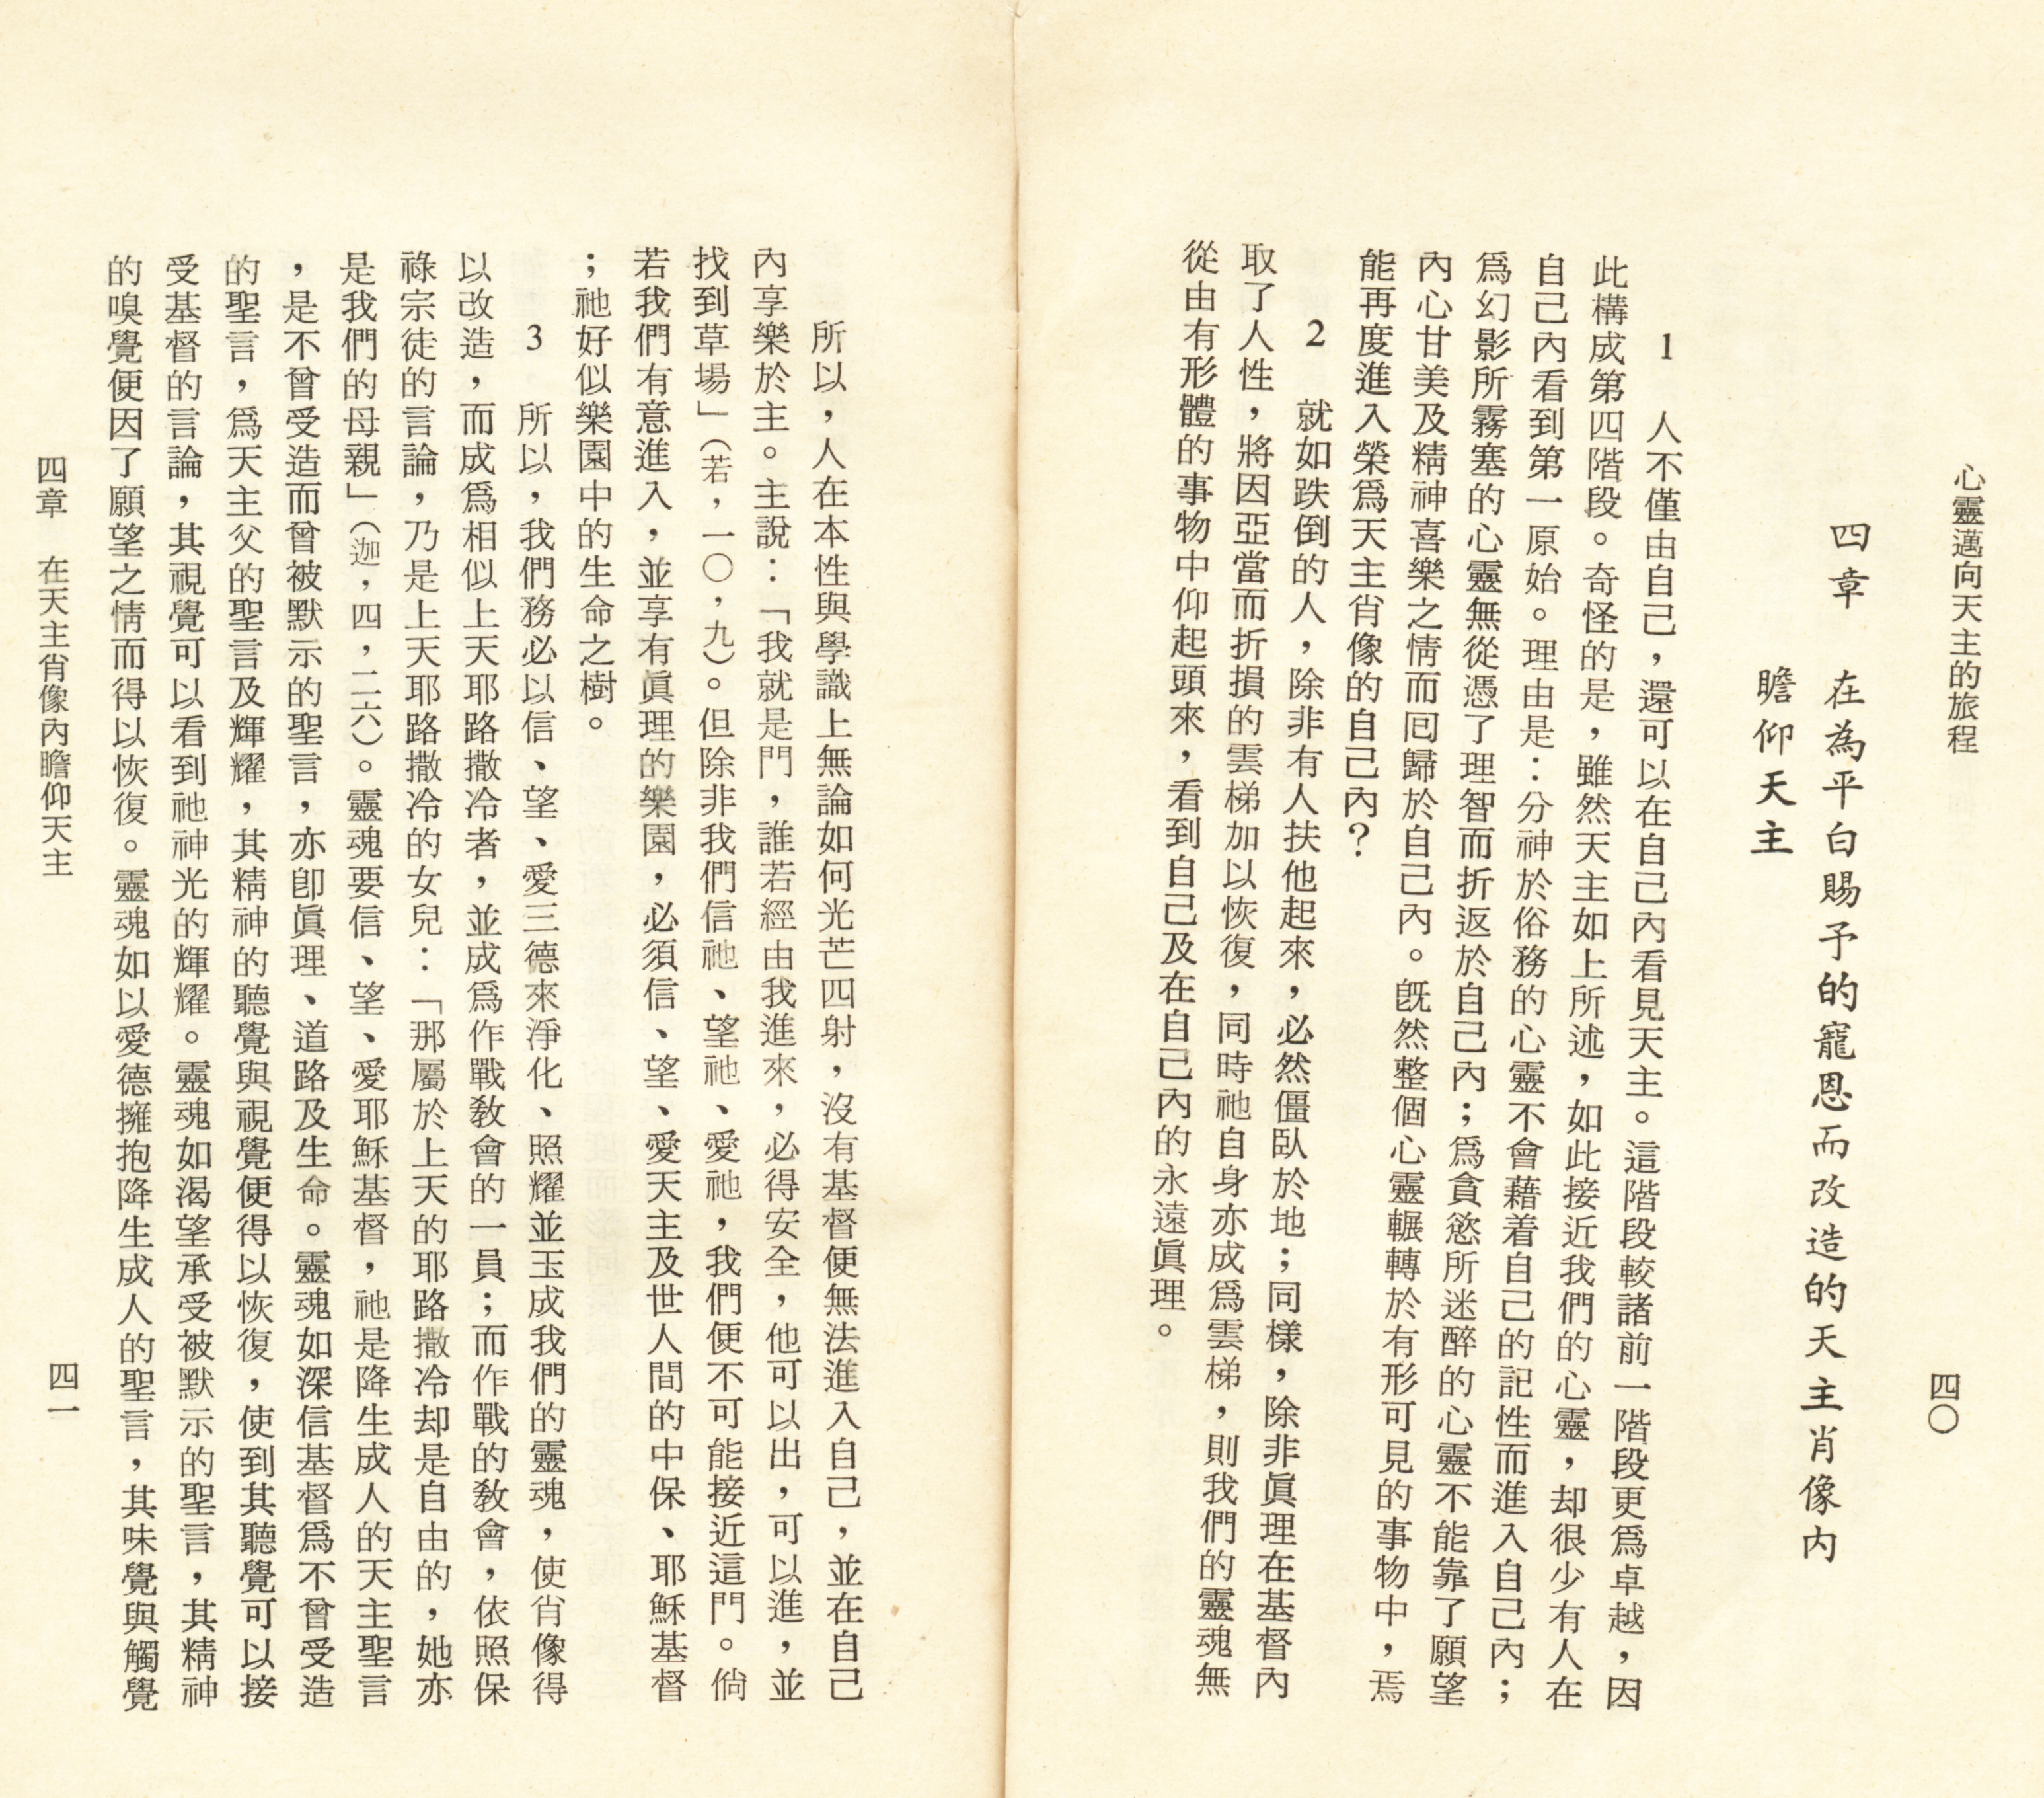 心靈邁向天主的旅程
四〇
四章　在為平白賜予的寵恩而改造的天主肖像内
瞻仰天主
1　人不僅由自己，還可以在自己內看見天主。這階段較諸前一階段更爲卓越，因
此構成第四階段。奇怪的是，雖然天主如上所述，如此接近我們的心靈，却很少有人在
自己內看到第一原始。理由是：分神於俗務的心靈不會藉着自己的記性而進入自己內；
爲幻影所霧塞的心靈無從憑了理智而折返於自己內；爲貪慾所迷醉的心靈不能靠了願望
內心甘美及精神喜樂之情而囘歸於自己內。旣然整個心靈輾轉於有形可見的事物中，焉
能再度進入榮爲天主肖像的自己內？
2　就如跌倒的人，除非有人扶他起來，必然僵臥於地；同樣，除非眞理在基督內
取了人性，將因亞當而折損的雲梯加以恢復，同時祂自身亦成爲雲梯，則我們的靈魂無
從由有形體的事物中仰起頭來，看到自己及在自己內的永遠眞理。
所以，人在本性與學識上無論如何光芒四射，沒有基督便無法進入自己，並在自己
內享樂於主。主說：「我就是門，誰若經由我進來，必得安全，他可以出，可以進，並
找到草場」（若，一〇，九）。但除非我們信祂、望祂、愛祂，我們便不可能接近這門。倘
若我們有意進入，並享有眞理的樂園，必須信、望、愛天主及世人間的中保、耶穌基督
；祂好似樂園中的生命之樹。
3　所以，我們務必以信、望、愛三德來淨化、照耀並玉成我們的靈魂，使肖像得
以改造，而成爲相似上天耶路撒冷者，並成爲作戰敎會的一員；而作戰的敎會，依照保
祿宗徒的言論，乃是上天耶路撒冷的女兒：「那屬於上天的耶路撒冷却是自由的，她亦
是我們的母親」（迦，四，二六）。靈魂要信、望、愛耶穌基督，祂是降生成人的天主聖言
，是不曾受造而曾被默示的聖言，亦卽眞理、道路及生命。靈魂如深信基督爲不曾受造
的聖言，爲天主父的聖言及輝耀，其精神的聽覺與視覺便得以恢復，使到其聽覺可以接
受基督的言論，其視覺可以看到祂神光的輝耀。靈魂如渴望承受被默示的聖言，其精神
的嗅覺便因了願望之情而得以恢復。靈魂如以愛德擁抱降生成人的聖言，其味覺與觸覺
四章　在天主肖像內瞻仰天主
四一